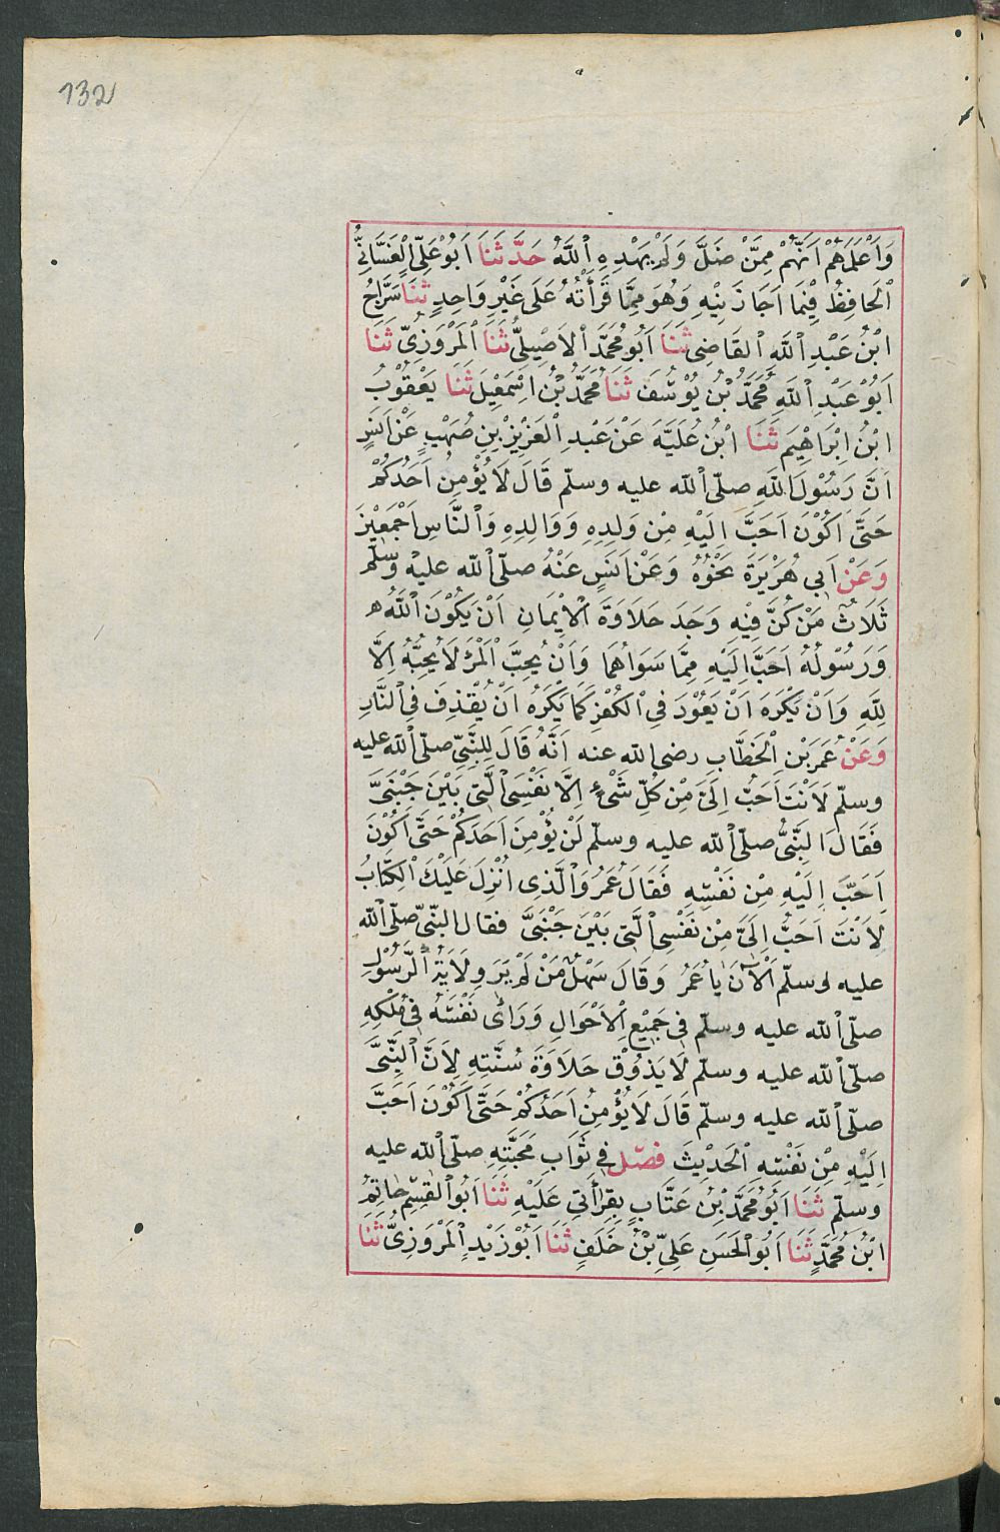 132
وَاَعْلَمَهُمْ اَنَّهُمْ مِمَّنْ ضَلَّ وَلَمْ يَهْدِهِ اللَّهُ حَدَّثَنَا اَبُوْ عَلِيّ الْغَسَّانِيُّ
الْحَافِظُ فِيْمَا اَجَازَنِيْهِ وَهُوَ مِمَّا قَرَأْتُهُ عَلَى غَيْرِ وَاحِدٍ ثَنَا سَرَّاجُ
ابْنُ عَبْدِ اللَّهِ الْقَاضِى ثَنَا اَبُو مُحَمَّدٍ الْاَصِيْلِىُّ ثَنَا الْمَرْوَزِىّ ثَنَا
اَبُوْ عَبْدِ اللَّهِ مُحَمَّدُ بْنُ يُوْسُفَ ثَنَا مُحَمَّدُ بْنُ اِسْمَعِيْلَ ثَنَا يَعْقُوْبُ
ابْنُ اِبْرَاهِيْمَ ثَنَا ابْنُ عُلَيَّةَ عَنْ عَبْدِ الْعَزِيْزِ بْنِ صُهَيْبٍ عَنْ اَنَسٍ
اَنَّ رَسُوْلَ اللَّهِ صلّى اللّه عليه وسلّم قَالَ لَا يُؤْمِنُ اَحَدُكُمْ
حَتَّى اَكُوْنَ اَحَبَّ اِلَيْهِ مِنْ وَلَدِهِ وَوَالِدِهِ وَالنَّاسِ اَجْمَعِيْنَ
وَعَنْ اَبِي هُرَيْرَةَ نَحْوُهُ وَعَنْ اَنَسٍ عَنْهُ صلّى اللّه عليه وسلّم
ثَلَاثٌ مَنْ كُنَّ فِيْهِ وَجَدَ حَلَاوَةَ الْاِيْمَانِ اَنْ يَكُوْنَ اللَّهُ
وَرَسُوْلُهُ اَحَبَّ اِلَيْهِ مِمَّا سِوَاهُمَا وَاَنْ يُحِبَّ الْمَرْءَ لَا يُحِبُّهُ اِلَّا
لِلَّهِ وَاَنْ يَكْرَهَ اَنْ يَعُوْدَ فِي الْكُفْرِ كَمَا يَكْرَهُ اَنْ يُقْذَفَ فِي النَّارِ
وَعَنْ عُمَرَ بْنِ الْخَطَّابِ رضى اللّه عنه اَنَّهُ قَالَ لِلنَّبِيِّ صلّى اللّه عليه
وسلّم لَاَنْتَ اَحَبُّ اِلَىَّ مِنْ كُلِّ شَىْءٍ اِلَّا نَفْسِىَ الَّتِى بَيْنَ جَنْبَىَّ
فَقَالَ النَّبِىُّ صلّى اللّه عليه وسلّم لَنْ يُؤْمِنَ اَحَدُكُمْ حَتَّى اَكُوْنَ
اَحَبَّ اِلَيْهِ مِنْ نَفْسِهِ فَقَالَ عُمَرُ وَالَّذِى اَنْزَلَ عَلَيْكَ الْكِتَابَ
لَاَنْتَ اَحَبُّ اِلَىَّ مِنْ نَفْسِى الَّتِى بَيْنَ جَنْبَىَّ فقال النبّىّ صلّى اللّه
عليه وسلّم الْاٰنَ يَا عُمَرُ وَقَالَ سَهْلٌ مَنْ لَمْ يَرَ وِلَايَةَ الرَّسُوْلِ
صلّى اللّه عليه وسلّم فِى جَمِيْعِ الْاَحْوَالِ وَرَاَى نَفْسَهُ فِى مُلْكِهِ
صلّى اللّه عليه وسلّم لَا يَذُوْقُ حَلَاوَةَ سُنَّتِهِ لِاَنَّ النَّبِىَّ
صلّى اللّه عليه وسلّم قَالَ لَا يُؤْمِنُ اَحَدُكُمْ حَتَّى اَكُوْنَ اَحَبَّ
اِلَيْهِ مِنْ نَفْسِهِ الْحَدِيْثَ فصل فِي ثَوَابِ مَحَبَّتِهِ صلّى اللّه عليه
وسلّم ثَنَا اَبُو مُحَمَّدُ بْنُ عَتَّابٍ بِقِرَأَتِى عَلَيْهِ ثَنَا اَبُو الْقٰسِمِ حَاتِمُ
ابْنُ مُحَمَّدٍ ثَنَا اَبُو الْحَسَنِ عَلِيّ بْنُ خَلَفٍ ثَنَا اَبُوْ زَيْدٍ الْمَرْوَزِىُّ ثَنَا